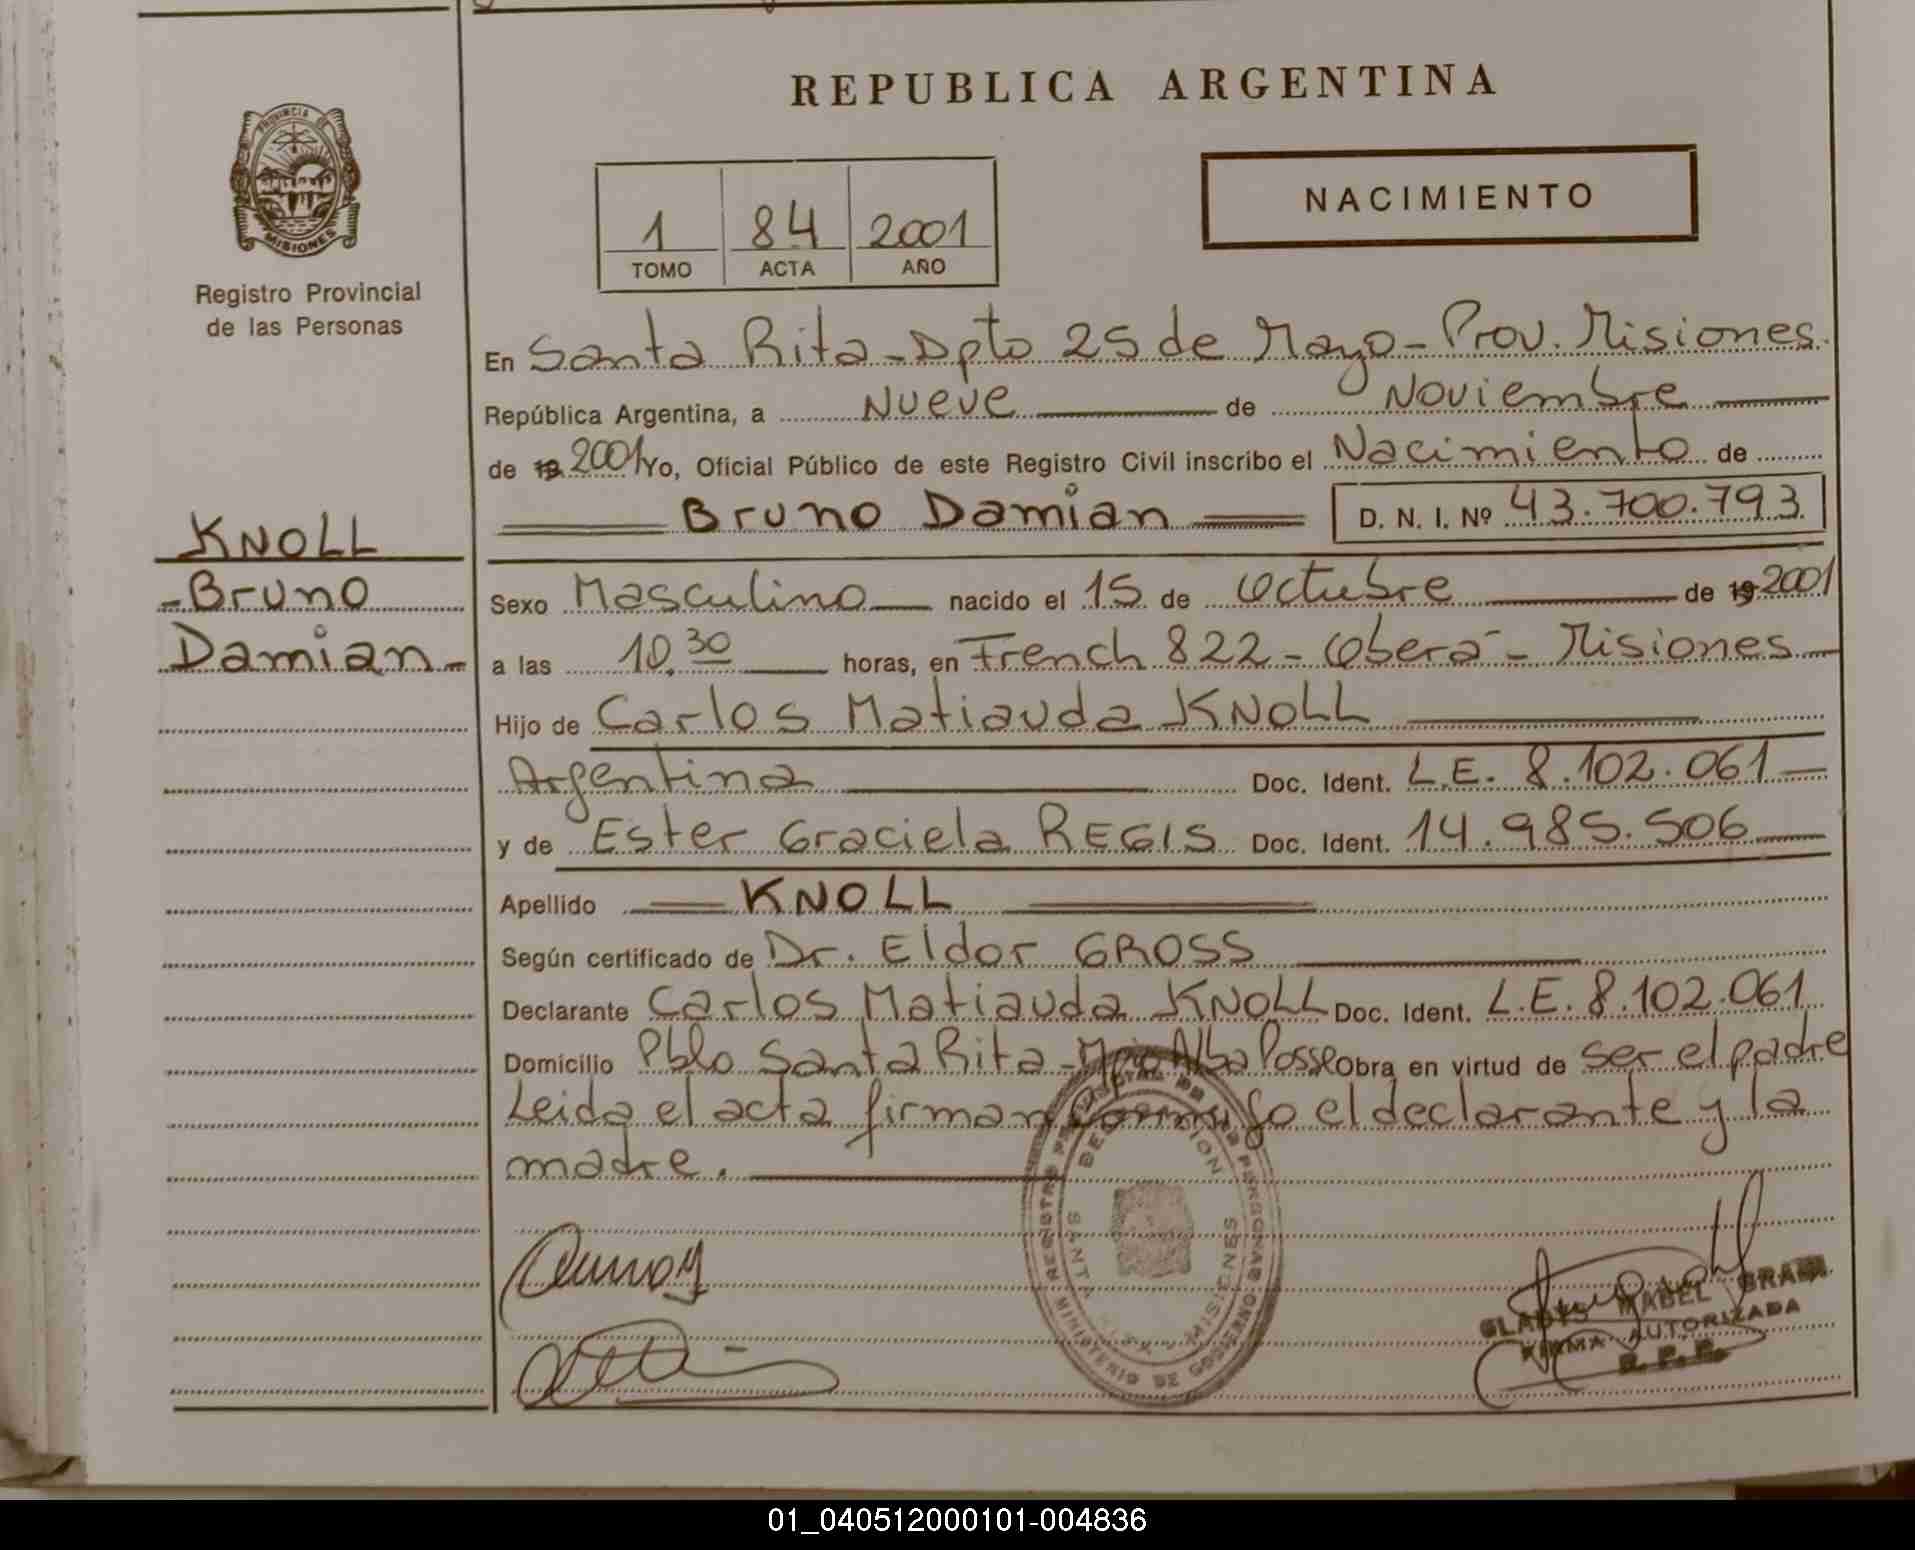 REPUBLICA ARGENTINA
PROVINCIA DE
MISIONES
Registro Provincial
de las Personas
NACIMIENTO
1 84 2001
TOMO ACTA AÑO
En Santa Rita - Dpto 25 de Mayo - Prov. Misiones.
República Argentina, a Nueve de Noviembre
de 19 2001 Yo, Oficial Público de este Registro Civil inscribo el Nacimiento de
Bruno Damian D. N. I. Nº 43.700.793
KNOLL
- Bruno
Damian -
Sexo Masculino nacido el 15 de Octubre de 19 2001
a las 10,30 horas, en French 822 - Oberá - Misiones
Hijo de Carlos Matiauda KNOLL
Argentina Doc. Ident. L.E. 8.102.061
y de Ester Graciela REGIS Doc. Ident. 14.985.506
Apellido KNOLL
Según certificado de Dr. Eldor GROSS
Declarante Carlos Matiauda KNOLL Doc. Ident. L.E. 8.102.061
Domicilio Pblo Santa Rita - Mpio Alba Posse Obra en virtud de ser el padre
Leida el acta firman conmigo el declarante y la
madre.
REGISTRO DE LAS PERSONAS
SANTA RITA - MISIONES
MINISTERIO DE GOBIERNO
GLADYS MABEL
FIRMA AUTORIZADA
R. P. P.
01_040512000101-004836